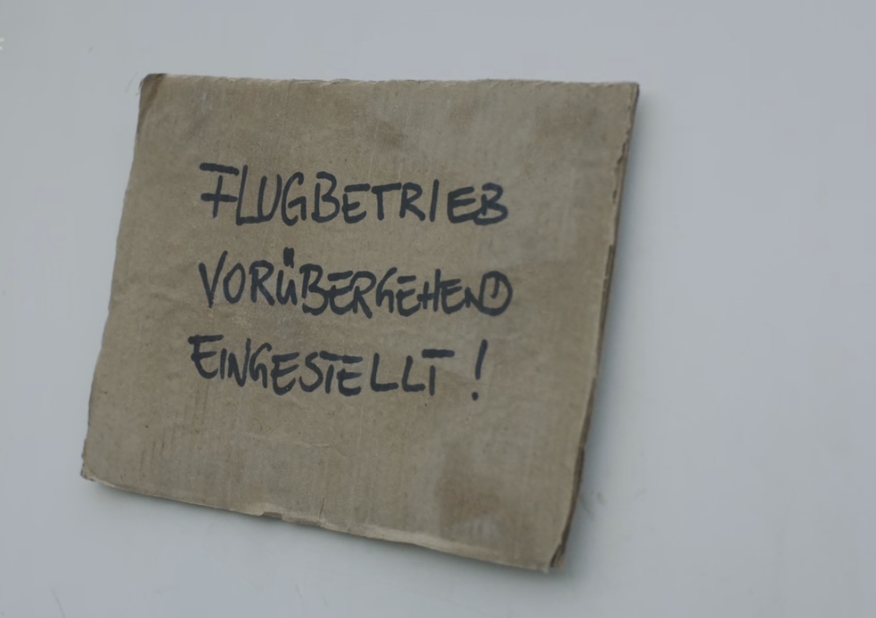 FLUGBETRIEB
VORÜBERGEHEND
EINGESTELLT!